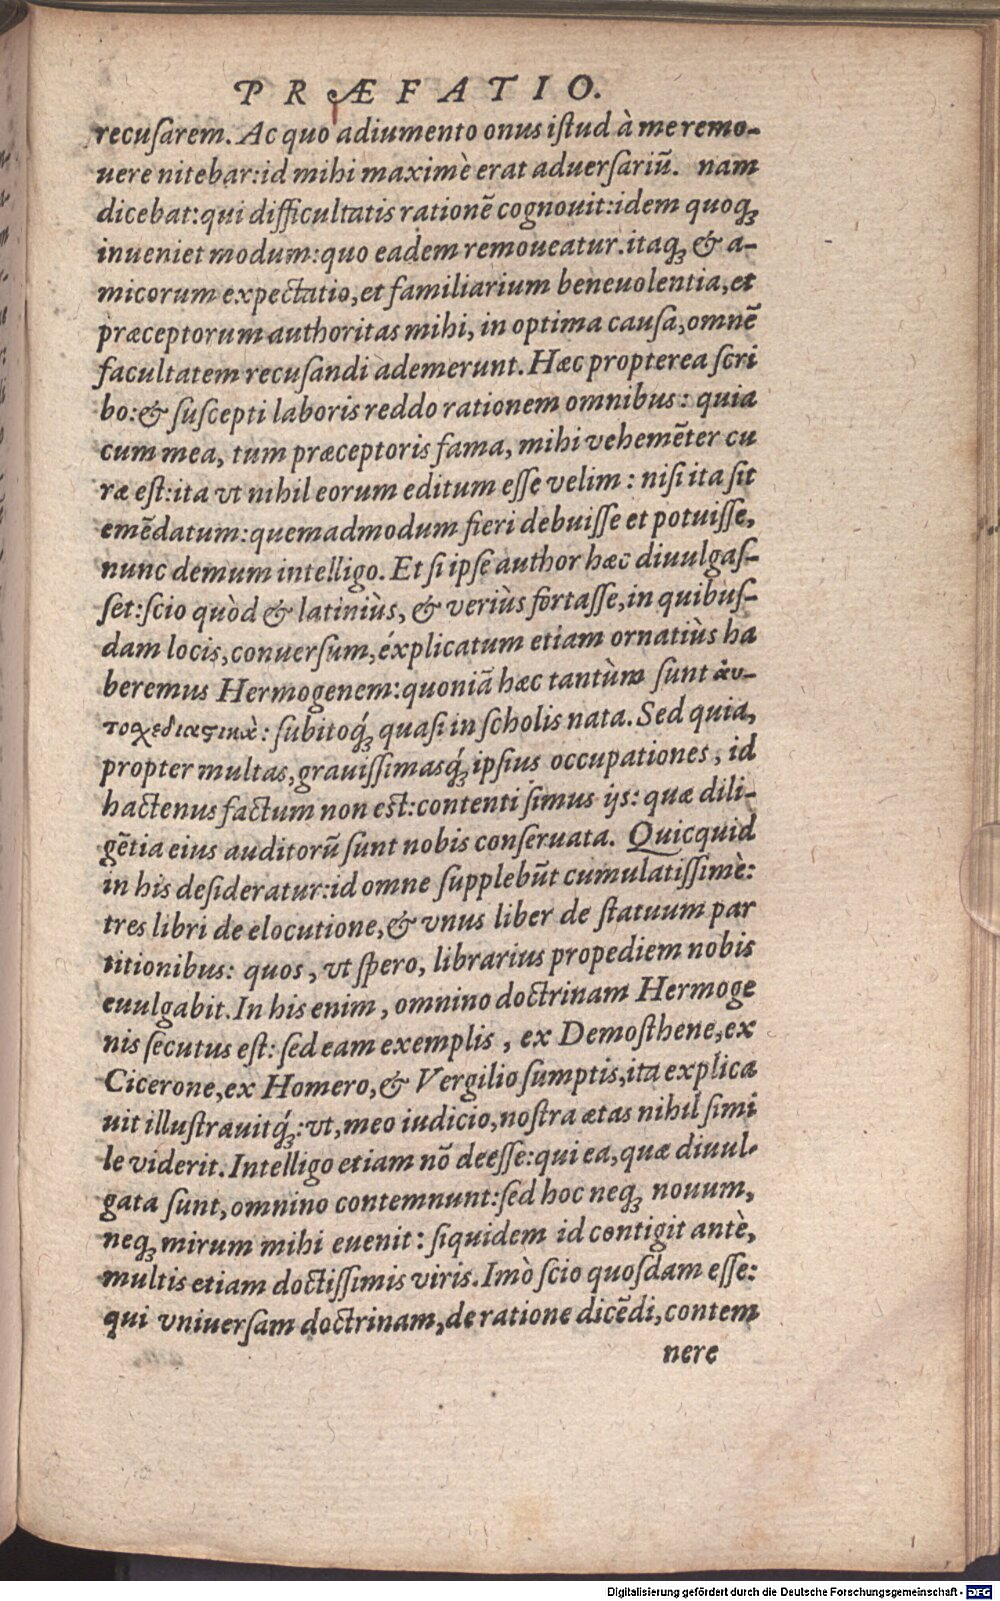 PRÆFATIO.
recuſarem. Ac quo adiumento onus iſtud à me remo-
uere nitebar: id mihi maximè erat aduerſariũ. nam
dicebat: qui difficultatis rationẽ cognouit: idem quoqꝫ
inueniet modum: quo eadem remoueatur. itaqꝫ & a-
micorum expectatio, et familiarium beneuolentia, et
præceptorum authoritas mihi, in optima cauſa, omnẽ
facultatem recuſandi ademerunt. Hæc propterea ſcri
bo: & ſuſcepti laboris reddo rationem omnibus: quia
cum mea, tum præceptoris fama, mihi vehemẽter cu
ræ eſt: ita vt nihil eorum editum eſſe velim: niſi ita ſit
emẽdatum: quemadmodum fieri debuiſſe et potuiſſe,
nunc demum intelligo. Et ſi ipſe author hæc diuulgaſ-
ſet: ſcio quòd & latiniùs, & veriùs fortaſſe, in quibuſ-
dam locis, conuerſum, éxplicatum etiam ornatiùs ha
beremus Hermogenem: quoniã hæc tantùm ſunt ἀυ-
τοχεδιαϛικὰ: ſubitoqꝫ́ quaſi in ſcholis nata. Sed quia,
propter multas, grauiſſimasqꝫ́ ipſius occupationes, id
hactenus factum non eſt: contenti ſimus ijs: quæ dili-
gẽtia eius auditorũ ſunt nobis conſeruata. Quicquid
in his deſideratur: id omne ſupplebũt cumulatiſſimè:
tres libri de elocutione, & vnus liber de ſtatuum par
titionibus: quos, vt ſpero, librarius propediem nobis
euulgabit. In his enim, omnino doctrinam Hermoge
nis ſecutus eſt: ſed eam exemplis, ex Demoſthene, ex
Cicerone, ex Homero, & Vergilio ſumptis, ita explica
uit illuſtrauitqꝫ́: vt, meo iudicio, noſtra ætas nihil ſimi
le viderit. Intelligo etiam nõ deeſſe: qui ea, quæ diuul-
gata ſunt, omnino contemnunt: ſed hoc neqꝫ nouum,
neqꝫ mirum mihi euenit: ſiquidem id contigit antè,
multis etiam doctiſſimis viris. Imò ſcio quoſdam eſſe:
qui vniuerſam doctrinam, de ratione dicẽdi, contem
nere
Digitalisierung gefördert durch die Deutsche Forschungsgemeinschaft - DFG